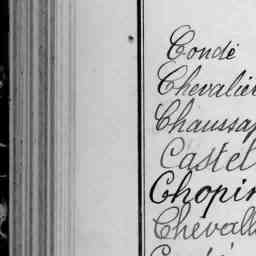 Condé
Chevalier
Chaussa
Castel
Chopin
Chevall